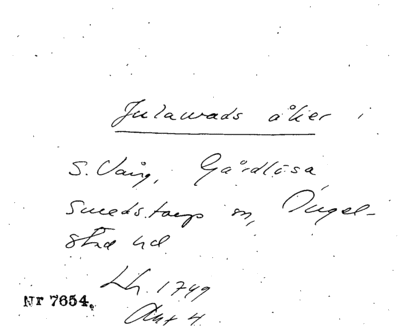 Julawads åker i
S. Vång, Gårdlösa,
Smedstorps sn, Ingel-
stad hd
Lh. 1749
Akt 4
Nr 7654.